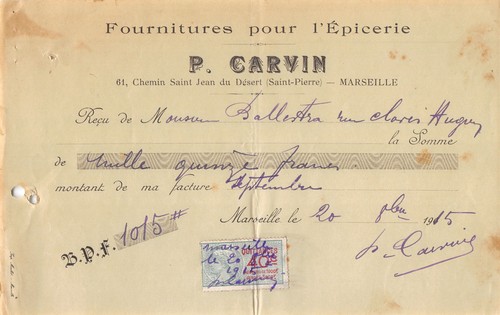 Fournitures pour l'Épicerie
P. CARVIN
61, Chemin Saint Jean du Désert (Saint-Pierre) — MARSEILLE
Reçu de Monsieur Ballestra rue Clovis Hugues
la Somme
de mille quinze francs
montant de ma facture septembre
Marseille le 20 8bre 1915
B.P.F. 1015 #
P. Carvin
Marseille
le 20 8bre
1915
P. Carvin